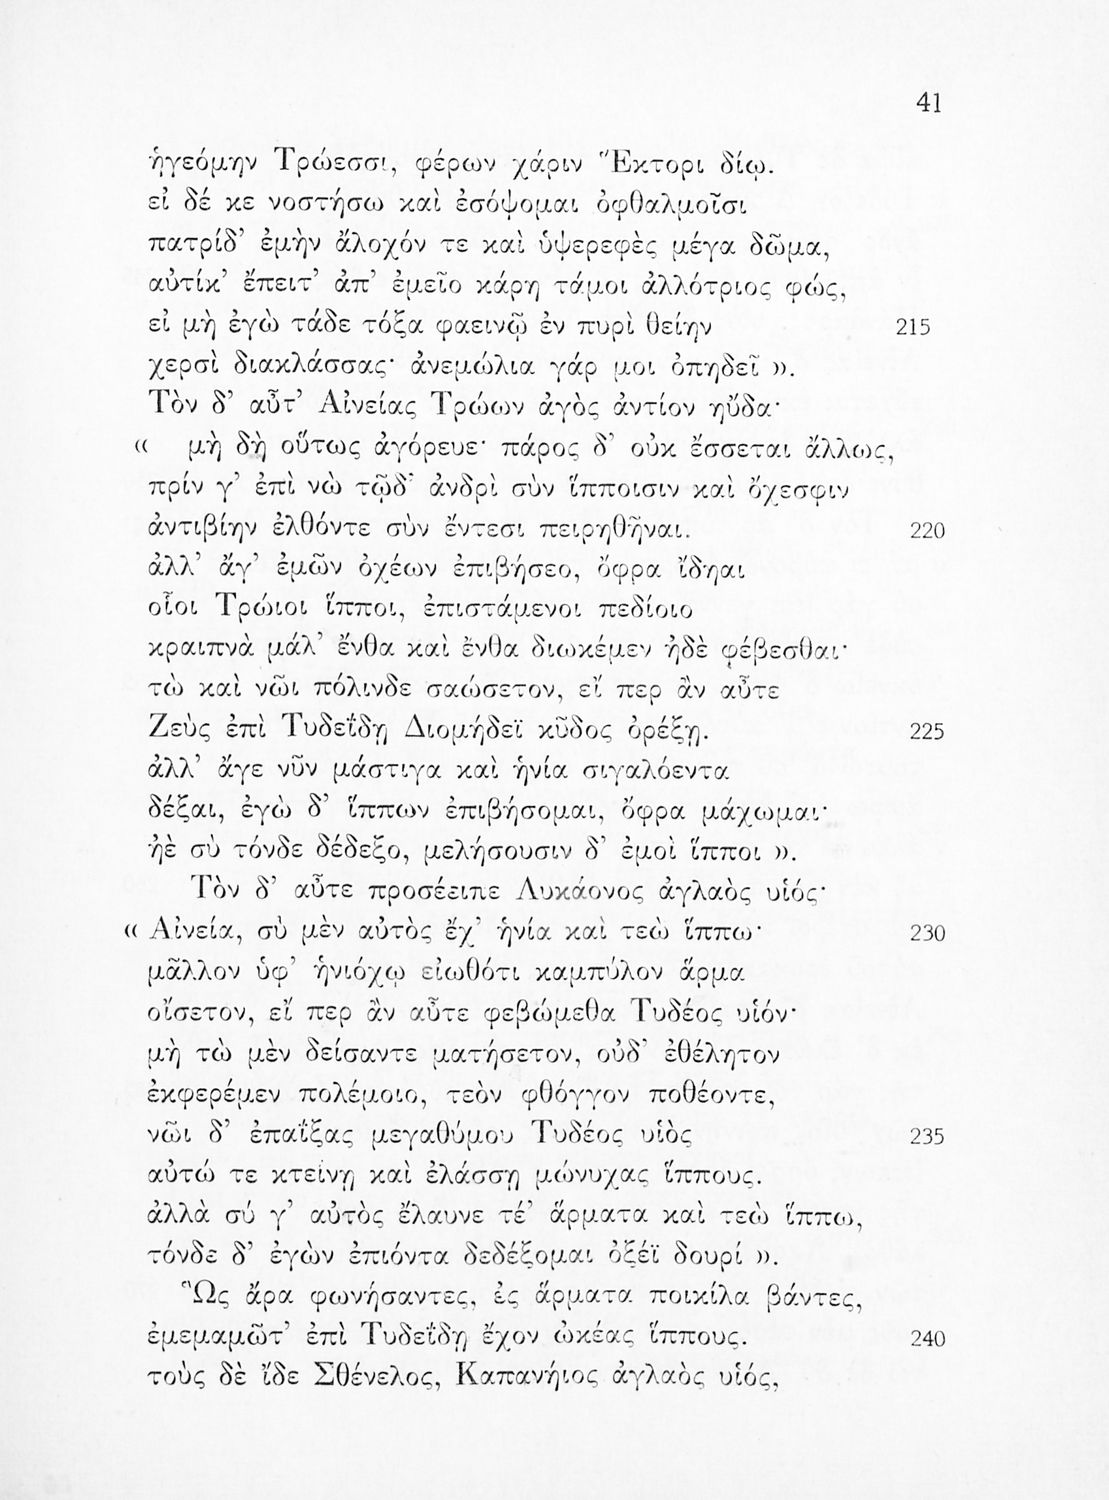 41
ἡγεόμην Τρώεσσι, φέρων χάριν Ἕκτορι δίῳ.
εἰ δέ κε νοστήσω καὶ ἐσόψομαι ὀφθαλμοῖσι
πατρίδ’ ἐμὴν ἄλοχόν τε καὶ ὑψερεφὲς μέγα δῶμα,
αὐτίκ’ ἔπειτ’ ἀπ’ ἐμεῖο κάρη τάμοι ἀλλότριος φώς,
εἰ μὴ ἐγὼ τάδε τόξα φαεινῷ ἐν πυρὶ θείην 215
χερσὶ διακλάσσας· ἀνεμώλια γάρ μοι ὀπηδεῖ ».
Τὸν δ’ αὖτ’ Αἰνείας Τρώων ἀγὸς ἀντίον ηὔδα·
« μὴ δὴ οὕτως ἀγόρευε· πάρος δ’ οὐκ ἔσσεται ἄλλως,
πρίν γ’ ἐπὶ νὼ τῷδ’ ἀνδρὶ σὺν ἵπποισιν καὶ ὄχεσφιν
ἀντιβίην ἐλθόντε σὺν ἔντεσι πειρηθῆναι. 220
ἀλλ’ ἄγ’ ἐμῶν ὀχέων ἐπιβήσεο, ὄφρα ἴδηαι
οἷοι Τρώιοι ἵπποι, ἐπιστάμενοι πεδίοιο
κραιπνὰ μάλ’ ἔνθα καὶ ἔνθα διωκέμεν ἠδὲ φέβεσθαι·
τὼ καὶ νῶι πόλινδε σαώσετον, εἴ περ ἂν αὖτε
Ζεὺς ἐπὶ Τυδεΐδῃ Διομήδεϊ κῦδος ὀρέξῃ. 225
ἀλλ’ ἄγε νῦν μάστιγα καὶ ἡνία σιγαλόεντα
δέξαι, ἐγὼ δ’ ἵππων ἐπιβήσομαι, ὄφρα μάχωμαι·
ἠὲ σὺ τόνδε δέδεξο, μελήσουσιν δ’ ἐμοὶ ἵπποι ».
Τὸν δ’ αὖτε προσέειπε Λυκάονος ἀγλαὸς υἱός·
« Αἰνεία, σὺ μὲν αὐτὸς ἔχ’ ἡνία καὶ τεὼ ἵππω· 230
μᾶλλον ὑφ’ ἡνιόχῳ εἰωθότι καμπύλον ἅρμα
οἴσετον, εἴ περ ἂν αὖτε φεβώμεθα Τυδέος υἱόν·
μὴ τὼ μὲν δείσαντε ματήσετον, οὐδ’ ἐθέλητον
ἐκφερέμεν πολέμοιο, τεὸν φθόγγον ποθέοντε,
νῶι δ’ ἐπαΐξας μεγαθύμου Τυδέος υἱὸς 235
αὐτώ τε κτείνῃ καὶ ἐλάσσῃ μώνυχας ἵππους.
ἀλλὰ σύ γ’ αὐτὸς ἔλαυνε τέ’ ἅρματα καὶ τεὼ ἵππω,
τόνδε δ’ ἐγὼν ἐπιόντα δεδέξομαι ὀξέϊ δουρί ».
Ὣς ἄρα φωνήσαντες, ἐς ἅρματα ποικίλα βάντες,
ἐμεμαμῶτ’ ἐπὶ Τυδεΐδῃ ἔχον ὠκέας ἵππους. 240
τοὺς δὲ ἴδε Σθένελος, Καπανήιος ἀγλαὸς υἱός,